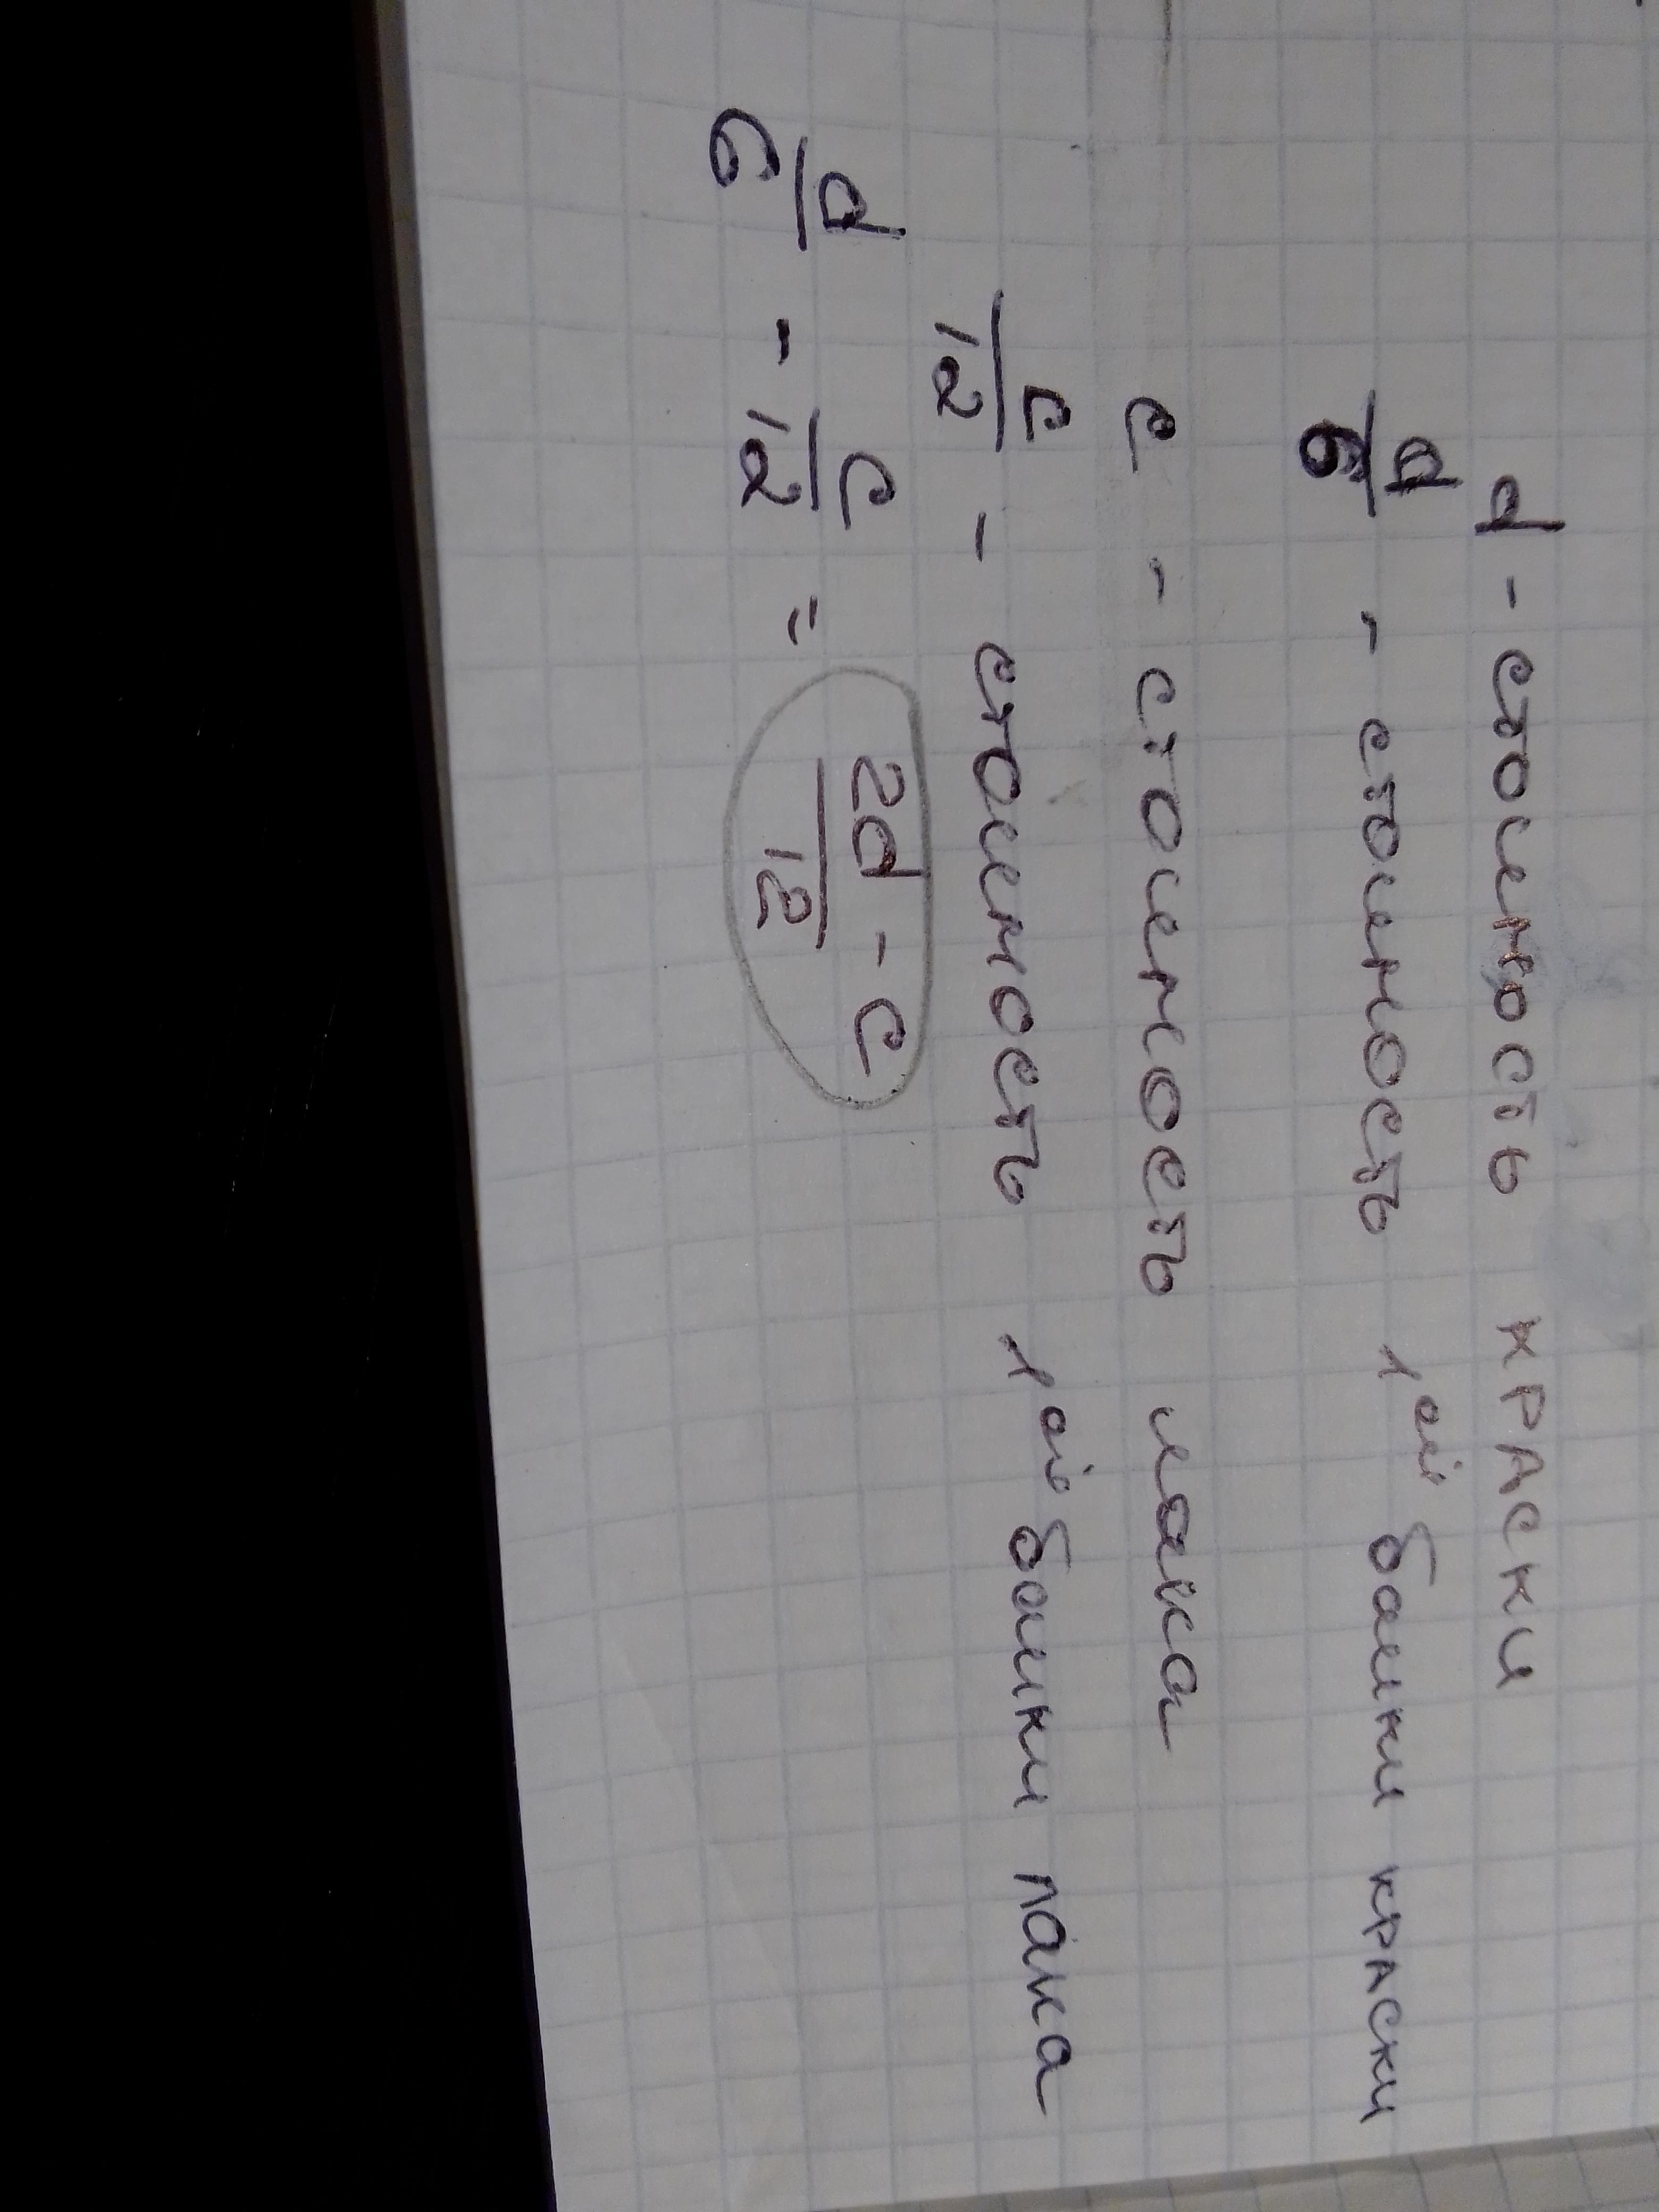 d - стоимость краски
d/6 - стоимость 1ой банки краски
c - стоимость лака
c/12 - стоимость 1ой банки лака
d/6 - c/12 = 2d - c/12